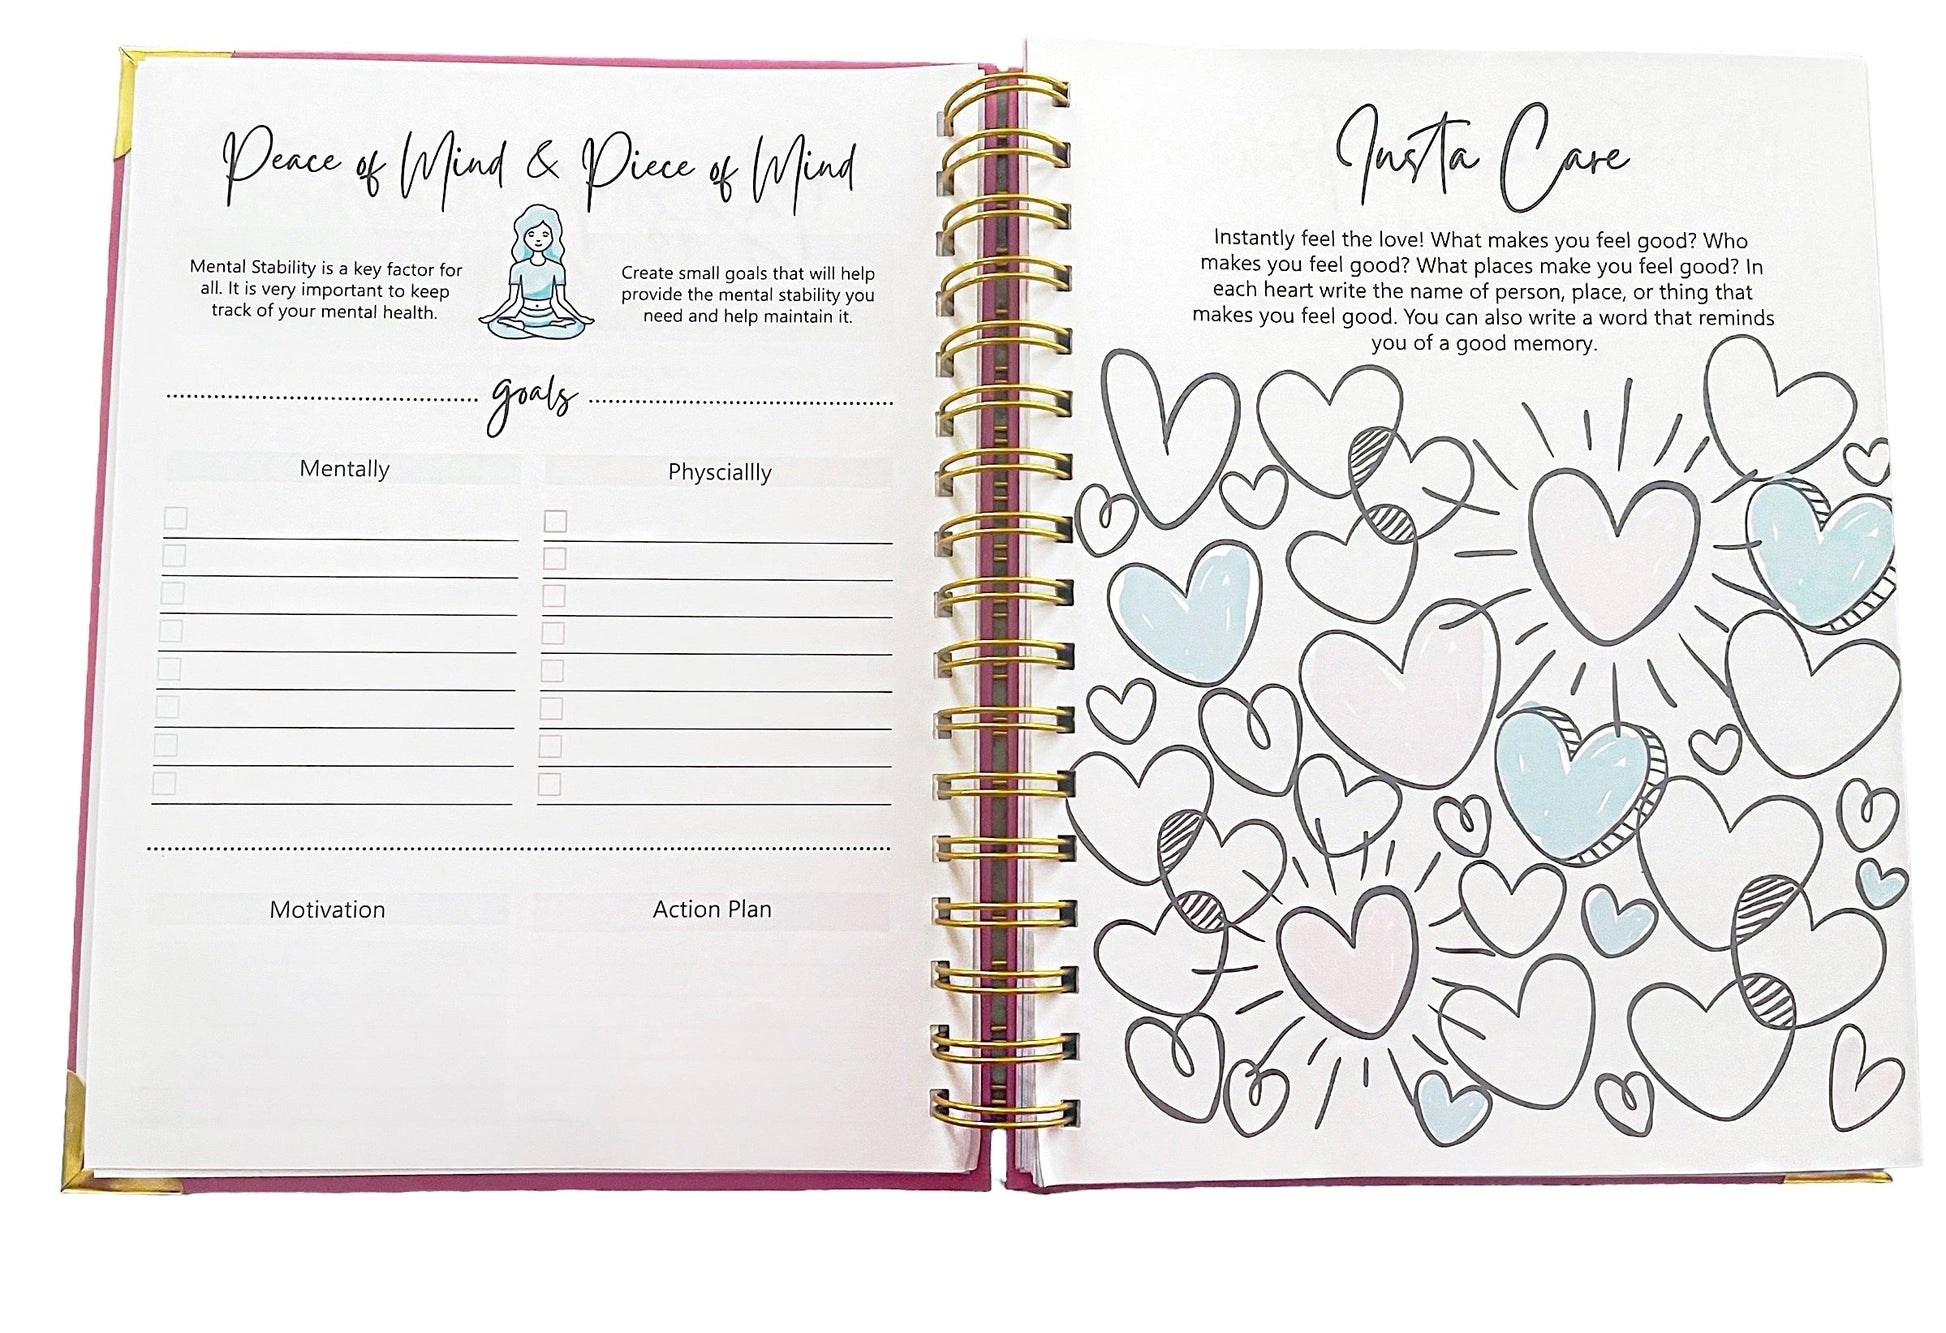 Peace of Mind & Piece of Mind
Mental Stability is a key factor for
all. It is very important to keep
track of your mental health.
Create small goals that will help
provide the mental stability you
need and help maintain it.
goals
Mentally
Physciallly
Motivation
Action Plan
Insta Care
Instantly feel the love! What makes you feel good? Who
makes you feel good? What places make you feel good? In
each heart write the name of person, place, or thing that
makes you feel good. You can also write a word that reminds
you of a good memory.